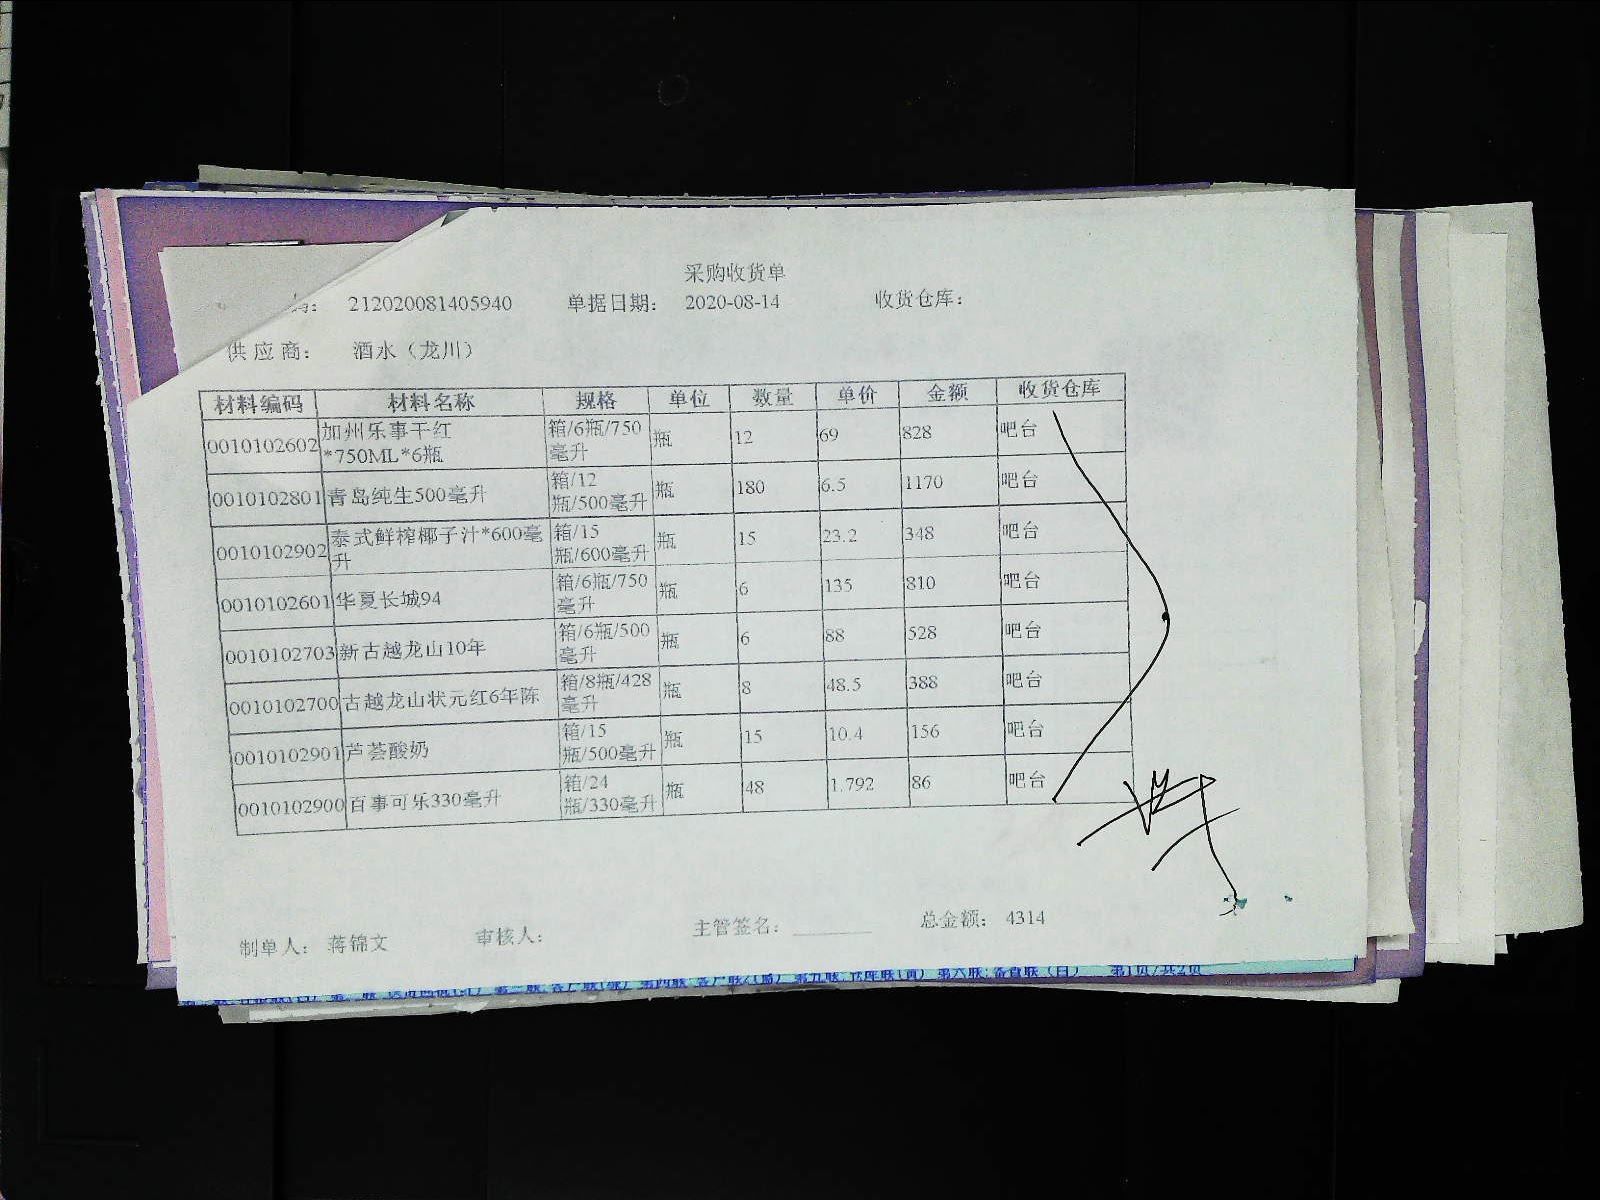 采购收货单
码： 212020081405940 单据日期： 2020-08-14 收货仓库：
供应商： 酒水（龙川）
材料编码 材料名称 规格 单位 数量 单价 金额 收货仓库
0010102602 加州乐事干红*750ML*6瓶 箱/6瓶/750毫升 瓶 12 69 828 吧台
0010102801 青岛纯生500毫升 箱/12瓶/500毫升 瓶 180 6.5 1170 吧台
0010102902 泰式鲜榨椰子汁*600毫升 箱/15瓶/600毫升 瓶 15 23.2 348 吧台
0010102601 华夏长城94 箱/6瓶/750毫升 瓶 6 135 810 吧台
0010102703 新古越龙山10年 箱/6瓶/500毫升 瓶 6 88 528 吧台
0010102700 古越龙山状元红6年陈 箱/8瓶/428毫升 瓶 8 48.5 388 吧台
0010102901 芦荟酸奶 箱/15瓶/500毫升 瓶 15 10.4 156 吧台
0010102900 百事可乐330毫升 箱/24瓶/330毫升 瓶 48 1.792 86 吧台
制单人： 蒋锦文 审核人： 主管签名： 总金额： 4314
第六联:备查联（白） 第1页/共2页